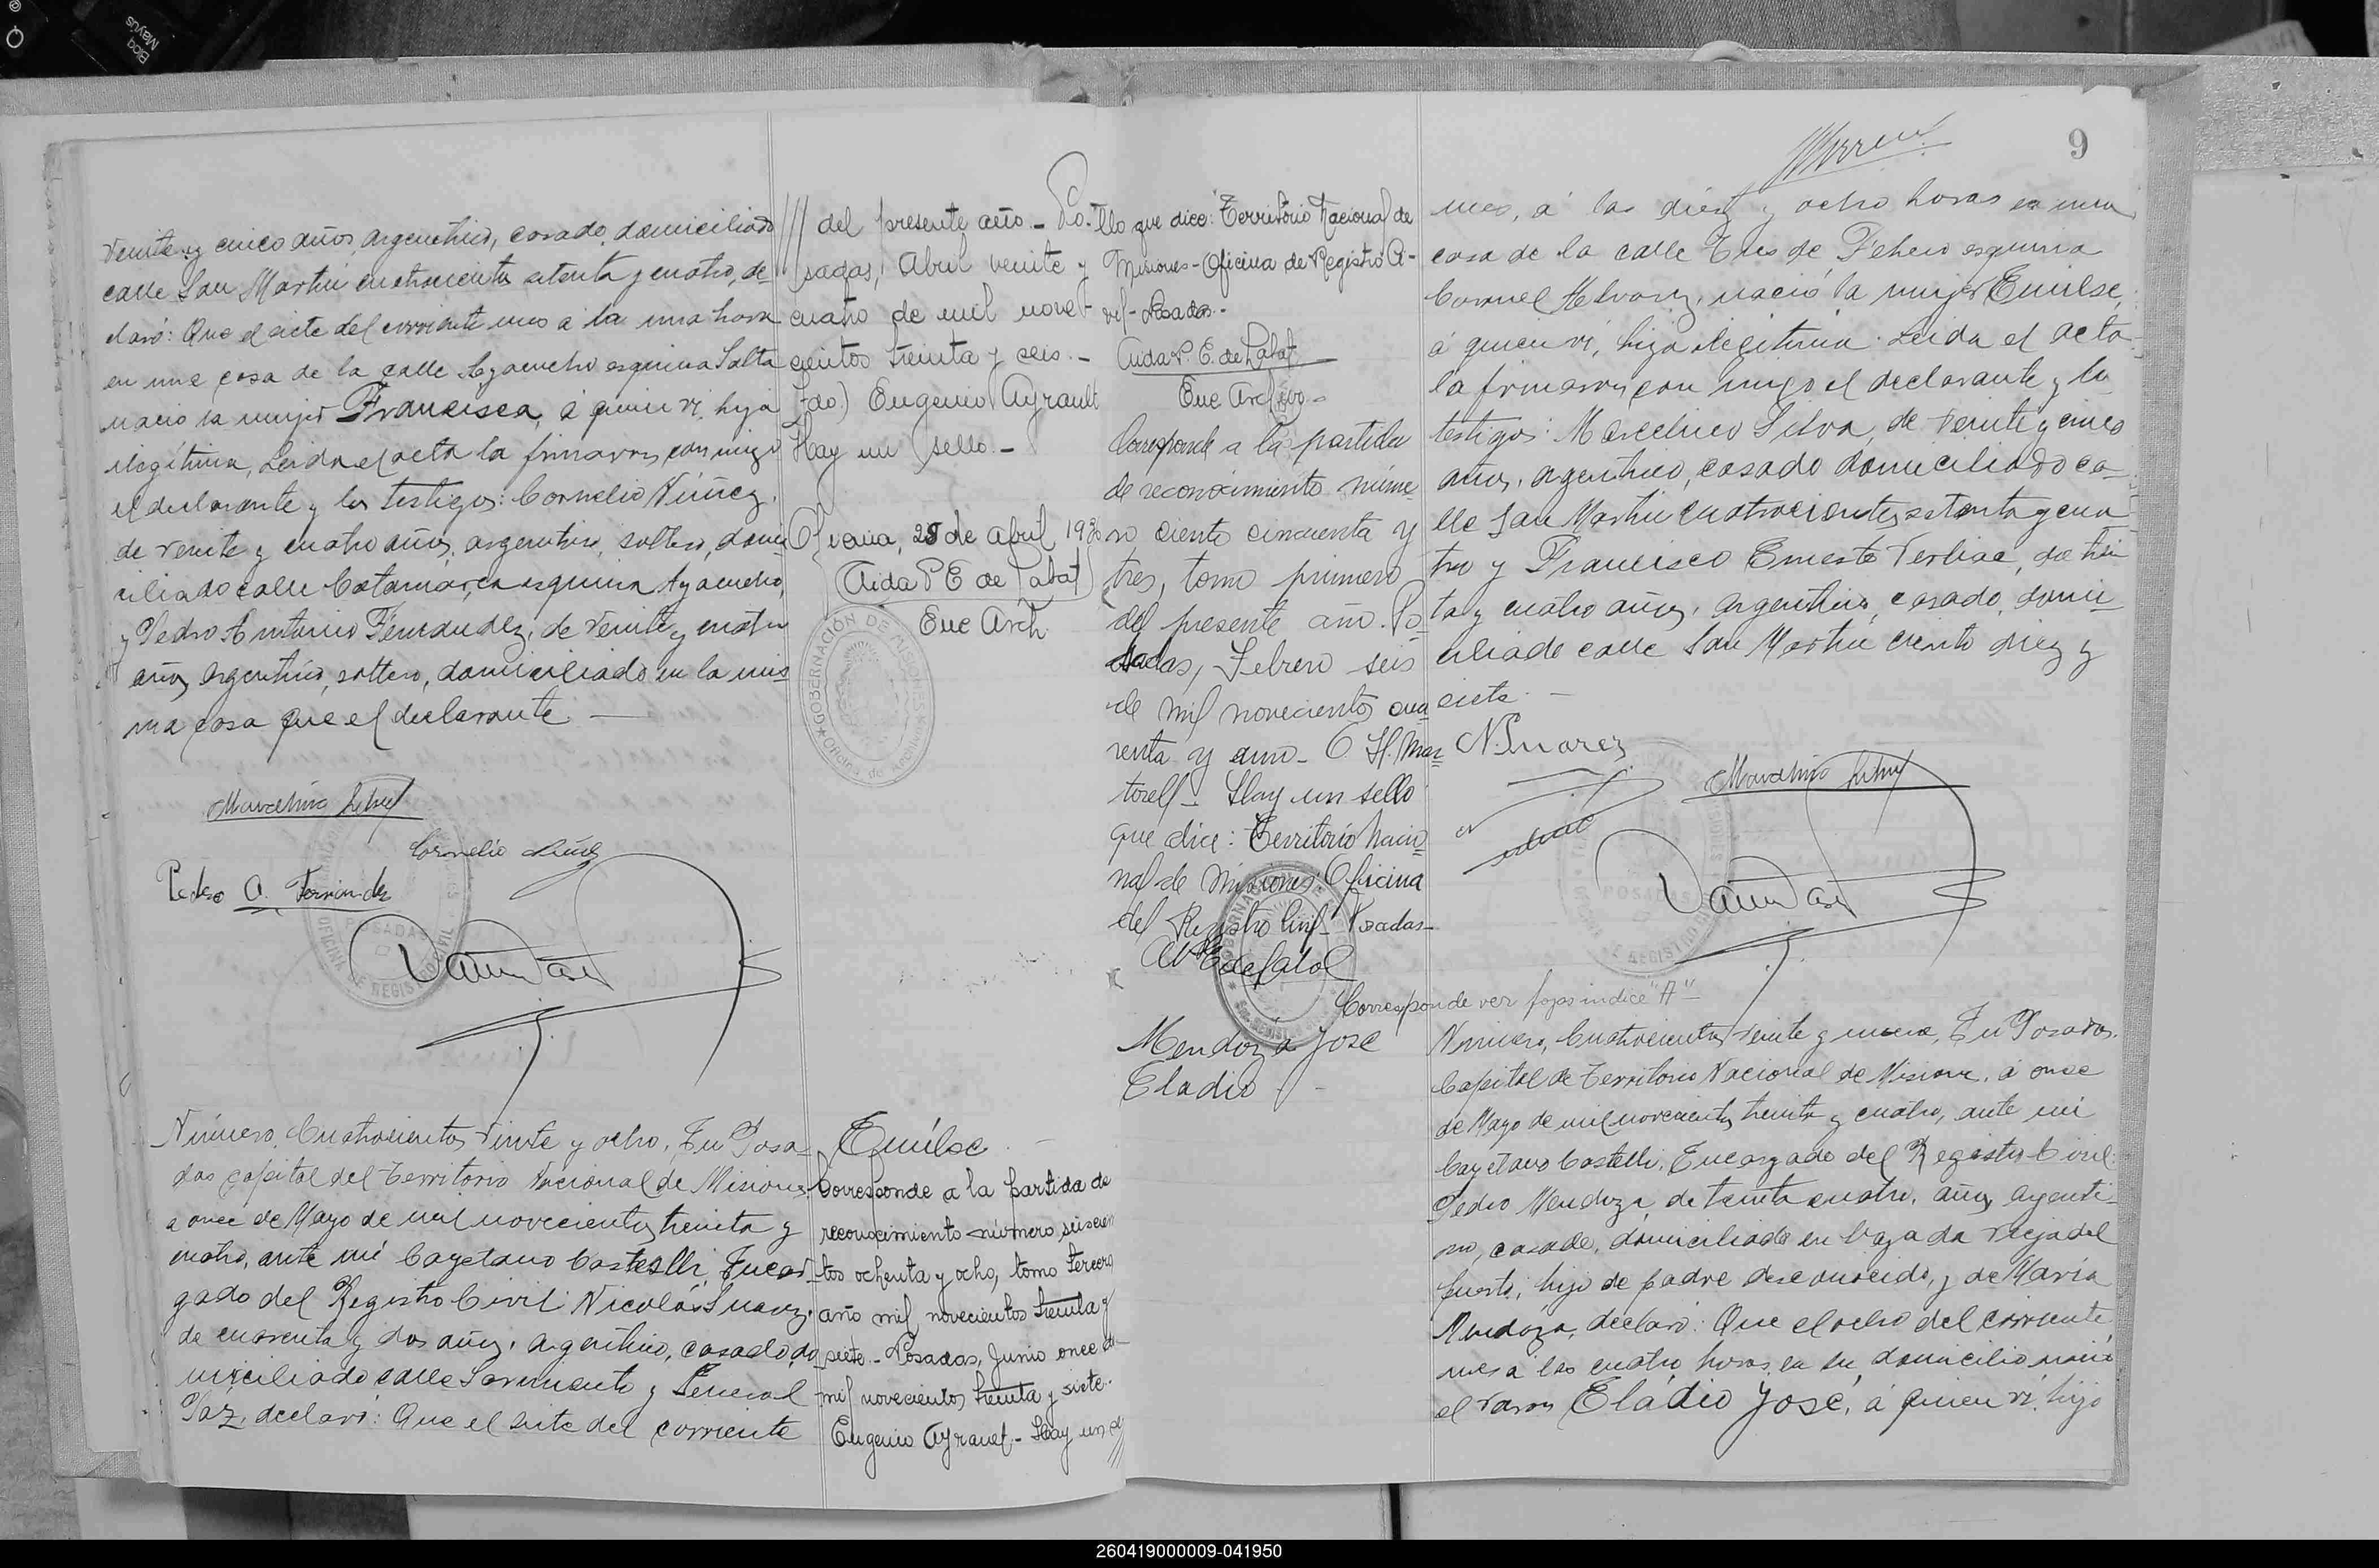 veinte y cinco años, argentino, casado, domiciliado
calle San Martín cuatrocientos setenta y cuatro, de
claró: Que el siete del corriente mes a la una hora
en una casa de la calle Ayacucho esquina Salta
nació la mujer Francisca, á quien ví, hija
ilegítima, Leida el acta la firmaron conmigo
el declarante y los testigos: Cornelio Núñez,
de veinte y cuatro años, argentino, soltero, domi
ciliado calle Catamarca esquina Ayacucho,
y Pedro Antonio Fernández, de veinte y cuatro
años, argentino, soltero, domiciliado en la mis
ma casa que el declarante —
Marcelino Silva
Cornelio Núñez
Pedro A. Fernández
Número, Cuatrocientos veinte y ocho, En Posa
das capital del Territorio Nacional de Misiones
a once de Mayo de mil novecientos treinta y
cuatro, ante mí Cayetano Castelli, Encar
gado del Registro Civil: Nicolás Suarez,
de cuarenta y dos años, argentino, casado, do
miciliado calle Sarmiento y General
Paz, declaró: Que el siete del corriente
/// del presente año - Po-
sadas, Abril veinte y
cuatro de mil nove-
cientos treinta y seis.-
Fdo.) Eugenio Ayrault
Hay un sello.-
Oficina, 28 de Abril 1936
Aida P E de Labat
Enc Arch.
GOBERNACIÓN DE MISIONES
Emilse
Corresponde a la partida de
reconocimiento número seiscien
tos ochenta y ocho, tomo tercero
año mil novecientos treinta y
siete.- Posadas, Junio once de
mil novecientos treinta y siete.
Eugenio Ayrault.- Hay un se
///
llo que dice: Territorio Nacional de
Misiones - Oficina de Registro Ci-
vil - Posadas.-
Aida P. E. de Labat
Enc Archivo -
Corresponde a la partida
de reconocimiento núme
ro ciento cincuenta y
tres, tomo primero
del presente año. Po
sadas, Febrero seis
de mil novecientos cua
renta y uno - C. H. Mar
torell - Hay un sello
que dice: Territorio Nacio
nal de Misiones Oficina
del Registro Civil - Posadas -
Corresponde ver fojas indice "A" -
Mendoza José
Eladio -
9
mes, á las diez y ocho horas en una
casa de la calle Tres de Febrero esquina
Coronel Alvarez, nació la mujer Emilse,
á quien ví, hija ilegítima. Leida el acta
la firmaron conmigo el declarante y los
testigos: Marcelino Silva, de veinte y cinco
años, argentino, casado domiciliado ca-
lle San Martín cuatrocientos setenta y cua
tro y Francisco Ernesto Verbiac, de trein
ta y cuatro años, argentino, casado, domi
ciliado calle San Martín ciento diez y
siete. —
N. Suarez
Marcelino Silva
Número, Cuatrocientos veinte y nueve, En Posadas,
Capital de Territorio Nacional de Misiones, á once
de Mayo de mil novecientos treinta y cuatro, ante mí
Cayetano Castelli, Encargado del Registro Civil:
Pedro Mendoza, de treinta cuatro, años, argenti
no, casado, domiciliado en bajada vieja del
puerto, hijo de padre desconocido, y de María
Mendoza, declaró: Que el ocho del corriente
mes á las cuatro horas, en su domicilio nació
el varón Eladio José, á quien ví, hijo
260419000009-041950